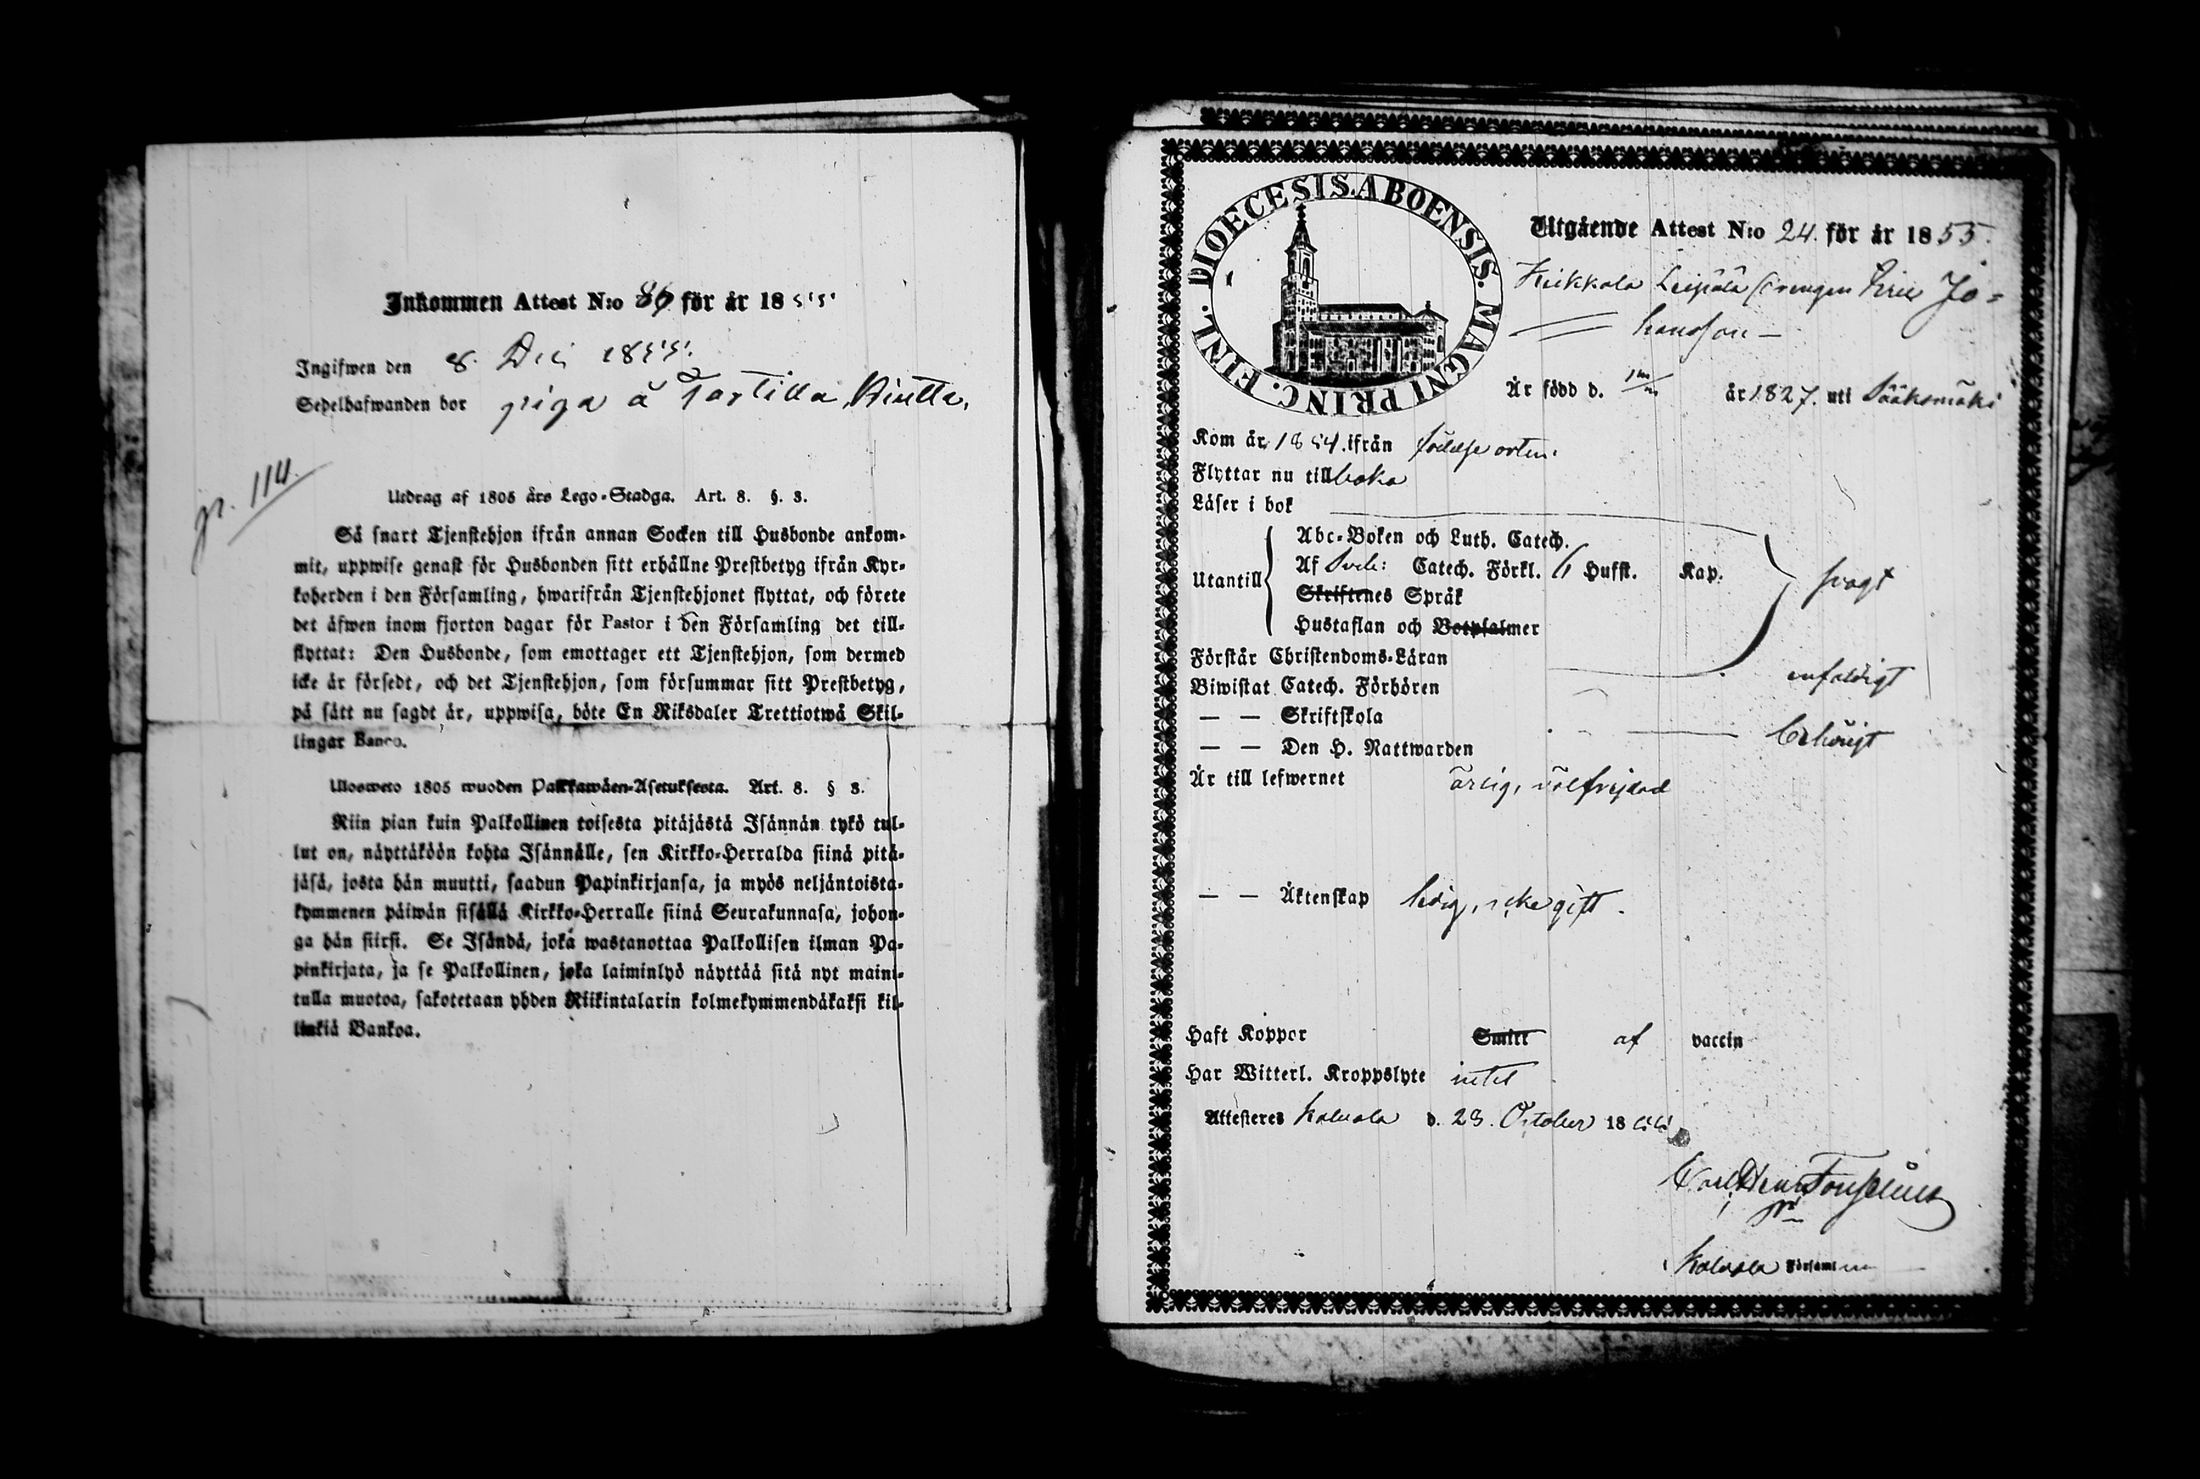 Inkommen Attest N:o 86 för år 1855
Ingifwen den 8. Dec 1855.
Sedelhafwanden bor piga å Tottilla
p. 114.
Utdrag af 1805 års Lego-Stadga. Art. 8. §. 3.
Så snart Tjenstehjon ifrån annan Socken till Husbonde ankom-
mit, uppwise genast för Husbonden sitt erhållne Prestbetyg ifrån Kyr-
koherden i den Församling, hwarifrån Tjenstehjonet flyttat, och förete
det äfwen inom fjorton dagar för Pastor i den Församling det till-
flyttat: Den Husbonde, som emottager ett Tjenstehjon, som dermed
icke är försedt, och det Tjenstehjon, som försummar sitt Prestbetyg,
på sätt nu sagdt är, uppwisa, böte En Riksdaler Trettiotwå Skil-
lingar Banco.
Ulosweto 1805 wuoden Palkkawäen-Asetuksesta. Art. 8. § 3.
Niin pian kuin Palkollinen toisesta pitäjästä Isännän tykö tul-
lut on, näyttäköön kohta Isännälle, sen Kirkko-Herralda siinä pitä-
jäsä, josta hän muutti, saadun Papinkirjansa, ja myös neljäntoista-
kymmenen päiwän sisällä Kirkko-Herralle siinä Seurakunnasa, johon-
ga hän siirsi. Se Isändä, joka wastanottaa Palkollisen ilman Pa-
pinkirjata, ja se Palkollinen, joka laiminlyö näyttää sitä nyt maini-
tulla muotoa, sakotetaan yhden Riikintalarin kolmekymmendäkaksi kil-
linkiä Bankoa.
DIOECESIS. ABOENSIS. MAGNI PRINC. FINL.
Utgående Attest N:o 24. för år 1855.
Heikkola Leipälä Drengen Eric Jo-
hansson
Är född d. år 1827. uti Sääksmäki
Kom år 1854. ifrån födelse orten.
Flyttar nu till baka
Läser i bok
Abc-Boken och Luth. Catech.
Utantill Af Sveb: Catech. Förkl. 6 Hufst. Kap. svagt
Skriftenes Språk
Hustaflan och Botpsalmer
Förstår Christendoms-Läran enfaldigt
Biwistat Catech. Förhören
— — Skriftskola
— — Den H. Nattwarden behörigt
Är till lefwernet ärlig, välfrejdad
— — Äktenskap ledig, icke gift.
Haft Koppor Smitt af vaccin
Har Witterl. Kroppslyte intet
Attesteres Kalvola d. 23. October 1855
Carl Henr
Kalvola Församl